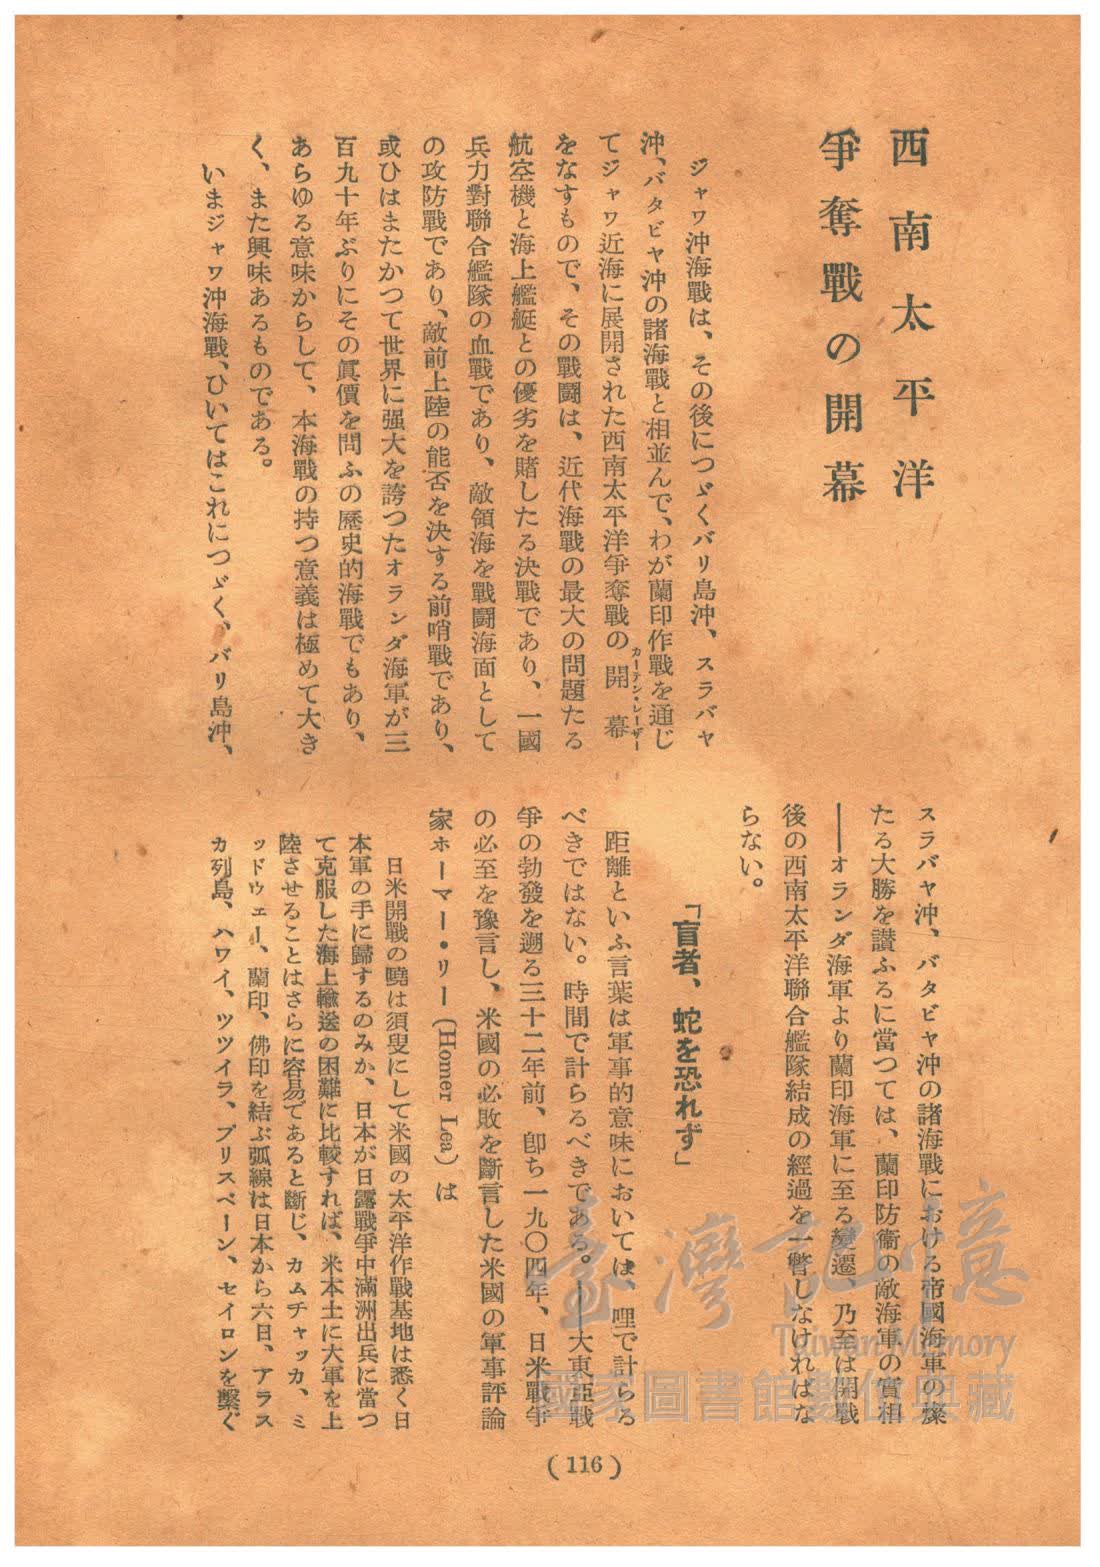 西南太平洋
爭奪戰の開幕
ジャワ沖海戰は、その後につゞくバリ島沖、スラバヤ
沖、バタビヤ沖の諸海戰と相並んで、わが蘭印作戰を通じ
てジャワ近海に展開された西南太平洋爭奪戰の開幕
カーテン・レーザー
をなすもので、その戰鬪は、近代海戰の最大の問題たる
航空機と海上艦艇との優劣を賭したる決戰であり、一國
兵力對聯合艦隊の血戰であり、敵領海を戰鬪海面として
の攻防戰であり、敵前上陸の能否を決する前哨戰であり、
或ひはまたかつて世界に强大を誇つたオランダ海軍が三
百九十年ぶりにその眞價を問ふの歷史的海戰でもあり、
あらゆる意味からして、本海戰の持つ意義は極めて大き
く、また興味あるものである。
いまジャワ沖海戰、ひいてはこれにつゞく、バリ島沖、
スラバヤ沖、バタビヤ沖の諸海戰における帝國海軍の燦
たる大勝を讃ふるに當つては、蘭印防衞の敵海軍の實相
――オランダ海軍より蘭印海軍に至る變遷、乃至は開戰
後の西南太平洋聯合艦隊結成の經過を一瞥しなければな
らない。
「盲者、蛇を恐れず」
距離といふ言葉は軍事的意味においては、哩で計らる
べきではない。時間で計らるべきである。――大東亞戰
爭の勃發を遡る三十二年前、卽ち一九〇四年、日米戰爭
の必至を豫言し、米國の必敗を斷言した米國の軍事評論
家ホーマー・リー(Homer Lea)は
日米開戰の曉は須臾にして米國の太平洋作戰基地は悉く日
本軍の手に歸するのみか、日本が日露戰爭中滿洲出兵に當つ
て克服した海上輸送の困難に比較すれば、米本土に大軍を上
陸させることはさらに容易であると斷じ、カムチャッカ、ミ
ッドウェー、蘭印、佛印を結ぶ弧線は日本から六日、アラス
カ列島、ハワイ、ツツイラ、ブリスベーン、セイロンを繫ぐ
(116)
臺灣記憶
Taiwan Memory
國家圖書館數位典藏